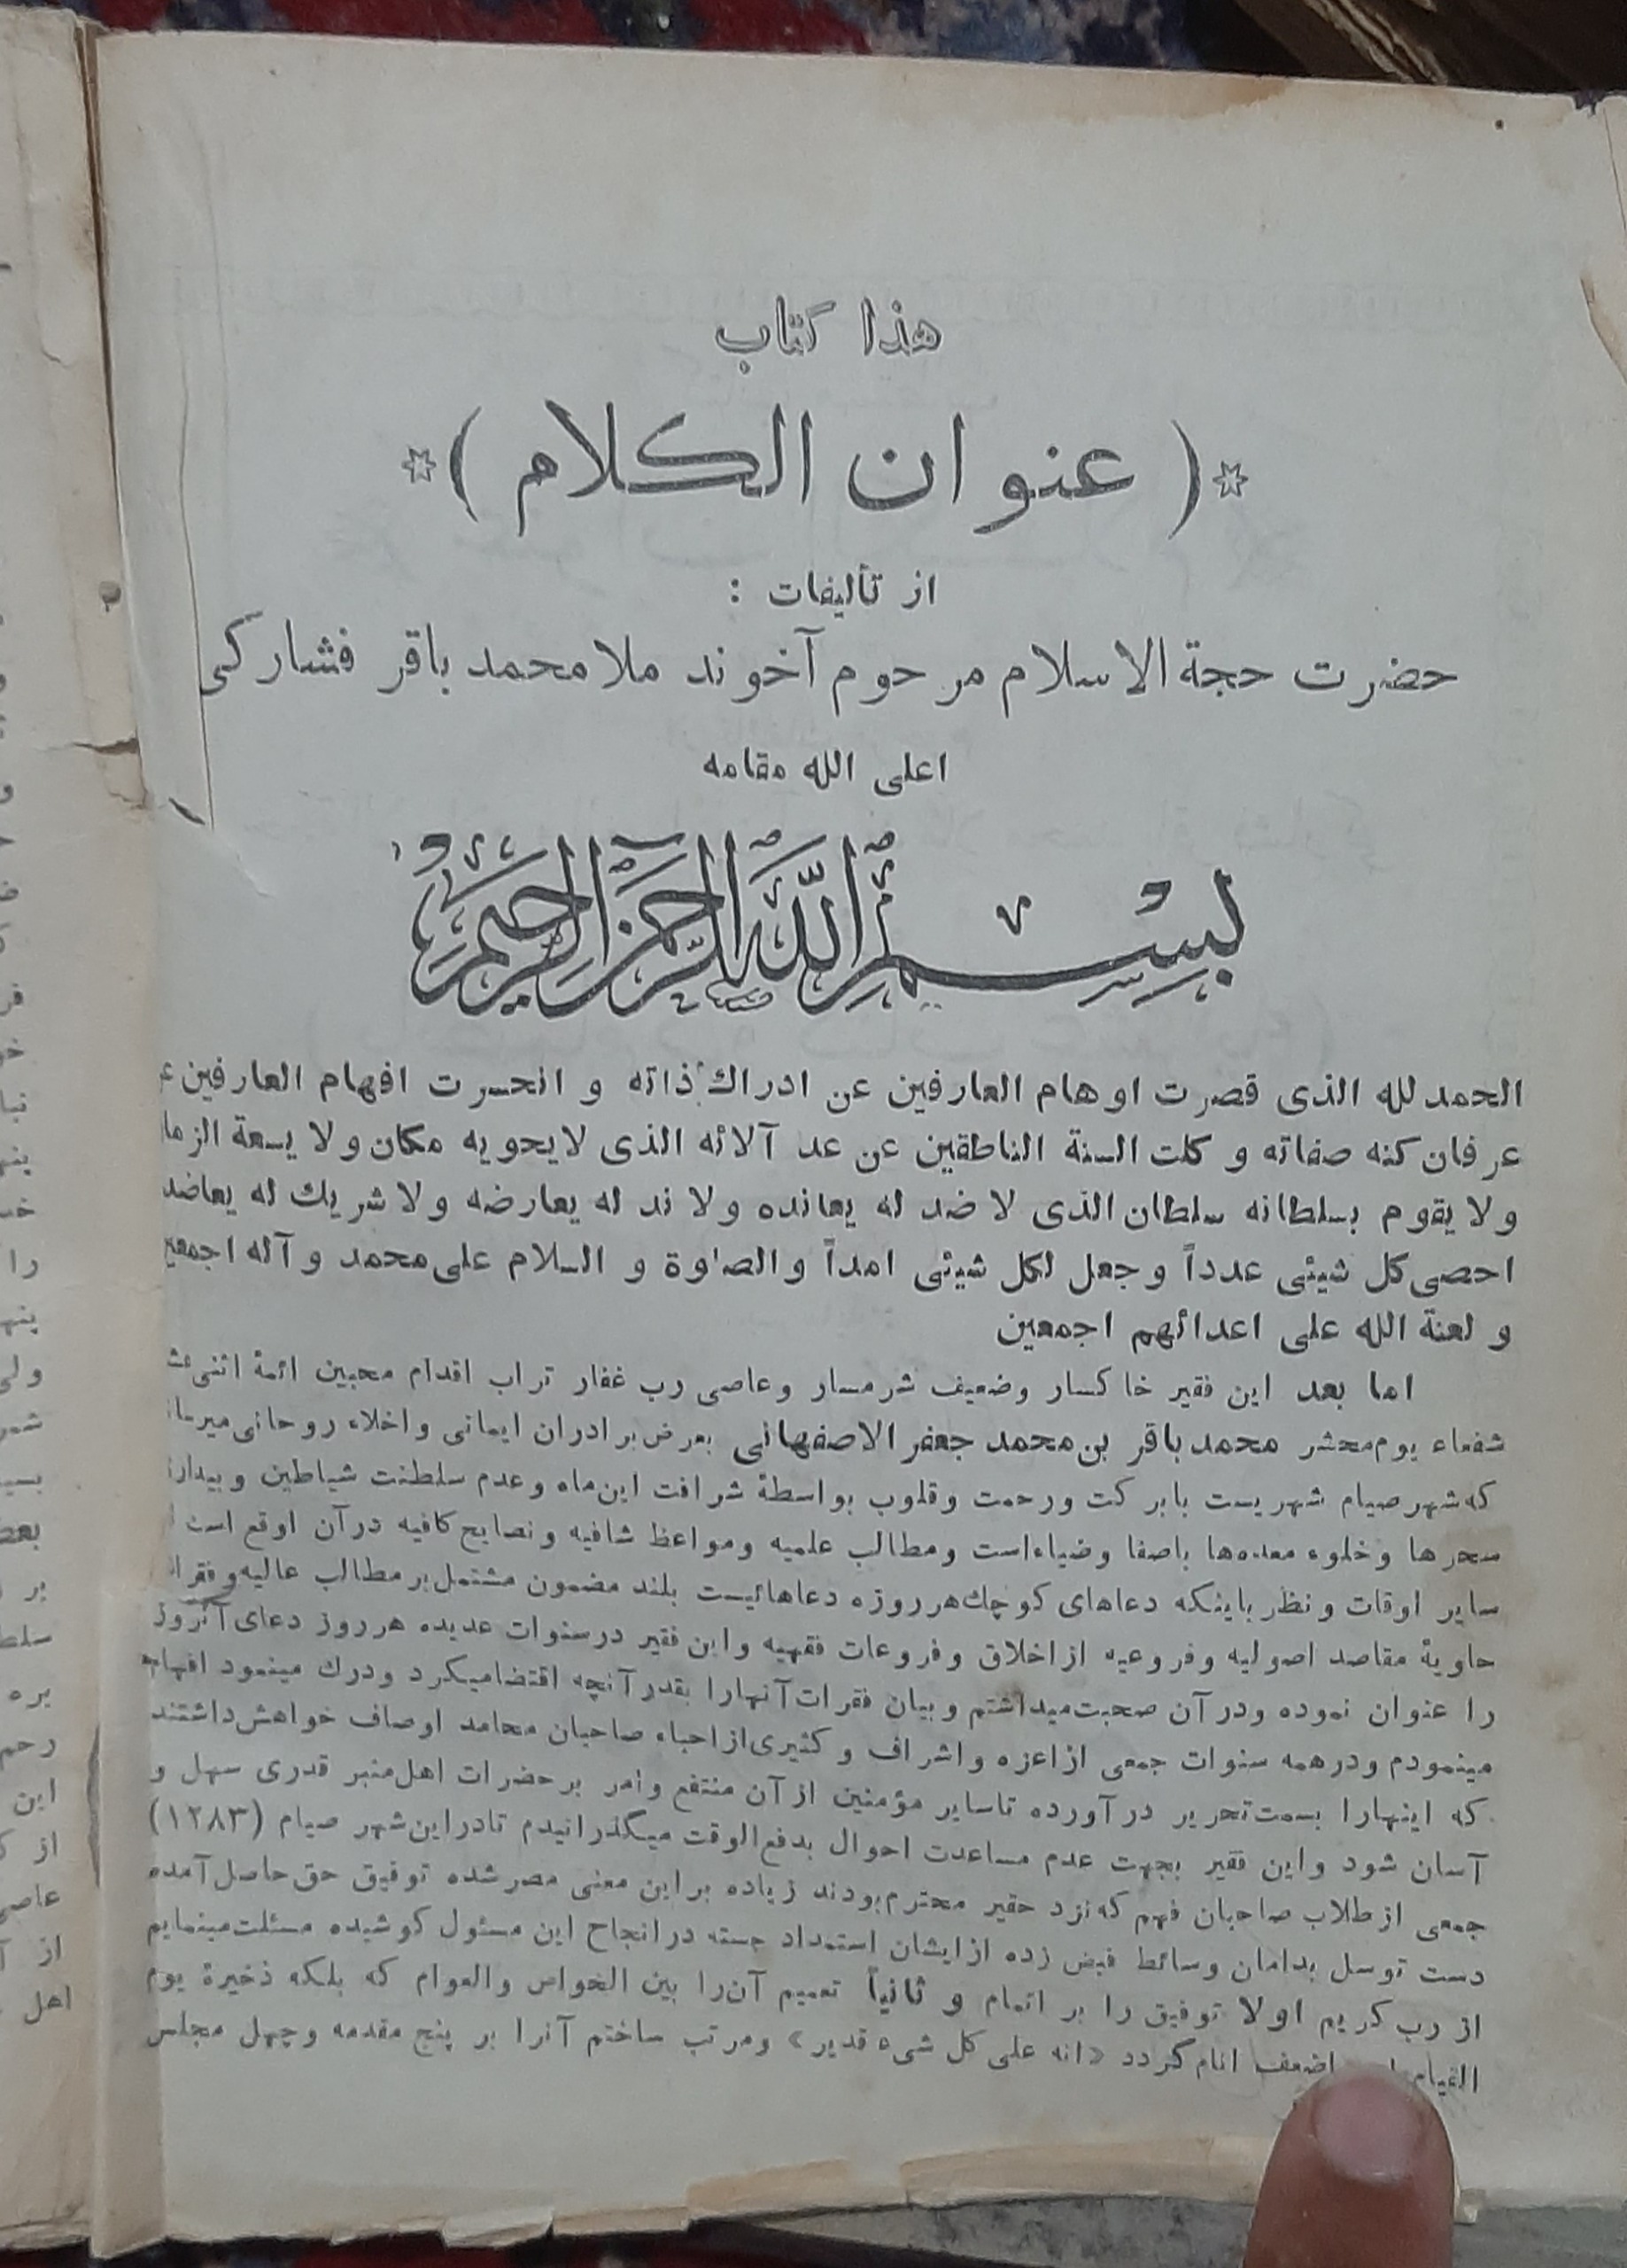 هذا كتاب
*( عنوان الكلام )*
از تأليفات :
حضرت حجة الاسلام مرحوم آخوند ملا محمد باقر فشاركی
اعلی الله مقامه
بسم الله الرحمن الرحيم
الحمد لله الذی قصرت اوهام العارفين عن ادراك ذاته و انحسرت افهام العارفين
عرفان كنه صفاته و كلت السنة الناطقين عن عد آلائه الذی لايحويه مكان ولا يسعة
ولا يقوم بسلطانه سلطان الذی لا ضد له يعانده ولا ند له يعارضه ولا شريك له
احصی كل شيئی عدداً و جعل لكل شيئی امداً والصلوة و السلام علی محمد و آله
و لعنة الله علی اعدائهم اجمعين
اما بعد اين فقير خاكسار وضعيف شرمسار وعاصی رب غفار تراب اقدام محبين ائمة
شفعاء يوم محشر محمد باقر بن محمد جعفر الاصفهانی بعرض برادران ايمانی واخلاء روحانی
كه شهر صيام شهريست بابركت ورحمت وقلوب بواسطة شرافت اين ماه وعدم سلطنت شياطين
سحرها وخلوء معده‌ها باصفا وضياءاست ومطالب علميه ومواعظ شافيه ونصايح كافيه درآن اوقع است
ساير اوقات ونظر باينكه دعاهای كوچك هرروزه دعاهائيست بلند مضمون مشتمل بر مطالب عاليه
حاوية مقاصد اصوليه وفروعيه ازاخلاق وفروعات فقهيه واين فقير درسنوات عديده هرروز دعای آنروز
را عنوان نموده ودرآن صحبت ميداشتم وبيان فقرات آنهارا بقدر آنچه اقتضاميكرد ودرك مينمود
مينمودم ودرهمه سنوات جمعی ازاعزه واشراف وكثيری ازاحباء صاحبان محامد اوصاف خواهش داشتند
كه اينهارا بسمت تحرير درآورده تاساير مؤمنين ازآن منتفع وامر برحضرات اهل منبر قدری سهل و
آسان شود واين فقير بجهت عدم مساعدت احوال بدفع الوقت ميگذرانيدم تادراين شهر صيام (۱۲۸۳)
جمعی ازطلاب صاحبان فهم كه نزد حقير محترم بودند زياده براين معنی مصرشده توفيق حق حاصل آمده
دست توسل بدامان وسائط فيض زده ازايشان استمداد جسته درانجاح اين مسئول كوشيده مسئلت مينمايم
از رب كريم اولا توفيق را بر اتمام و ثانياً تعميم آن‌را بين الخواص والعوام كه بلكه ذخيرة يوم
اضعف انام گردد «انه علی كل شیء قدير» ومرتب ساختم آنرا بر پنج مقدمه وچهل مجلس